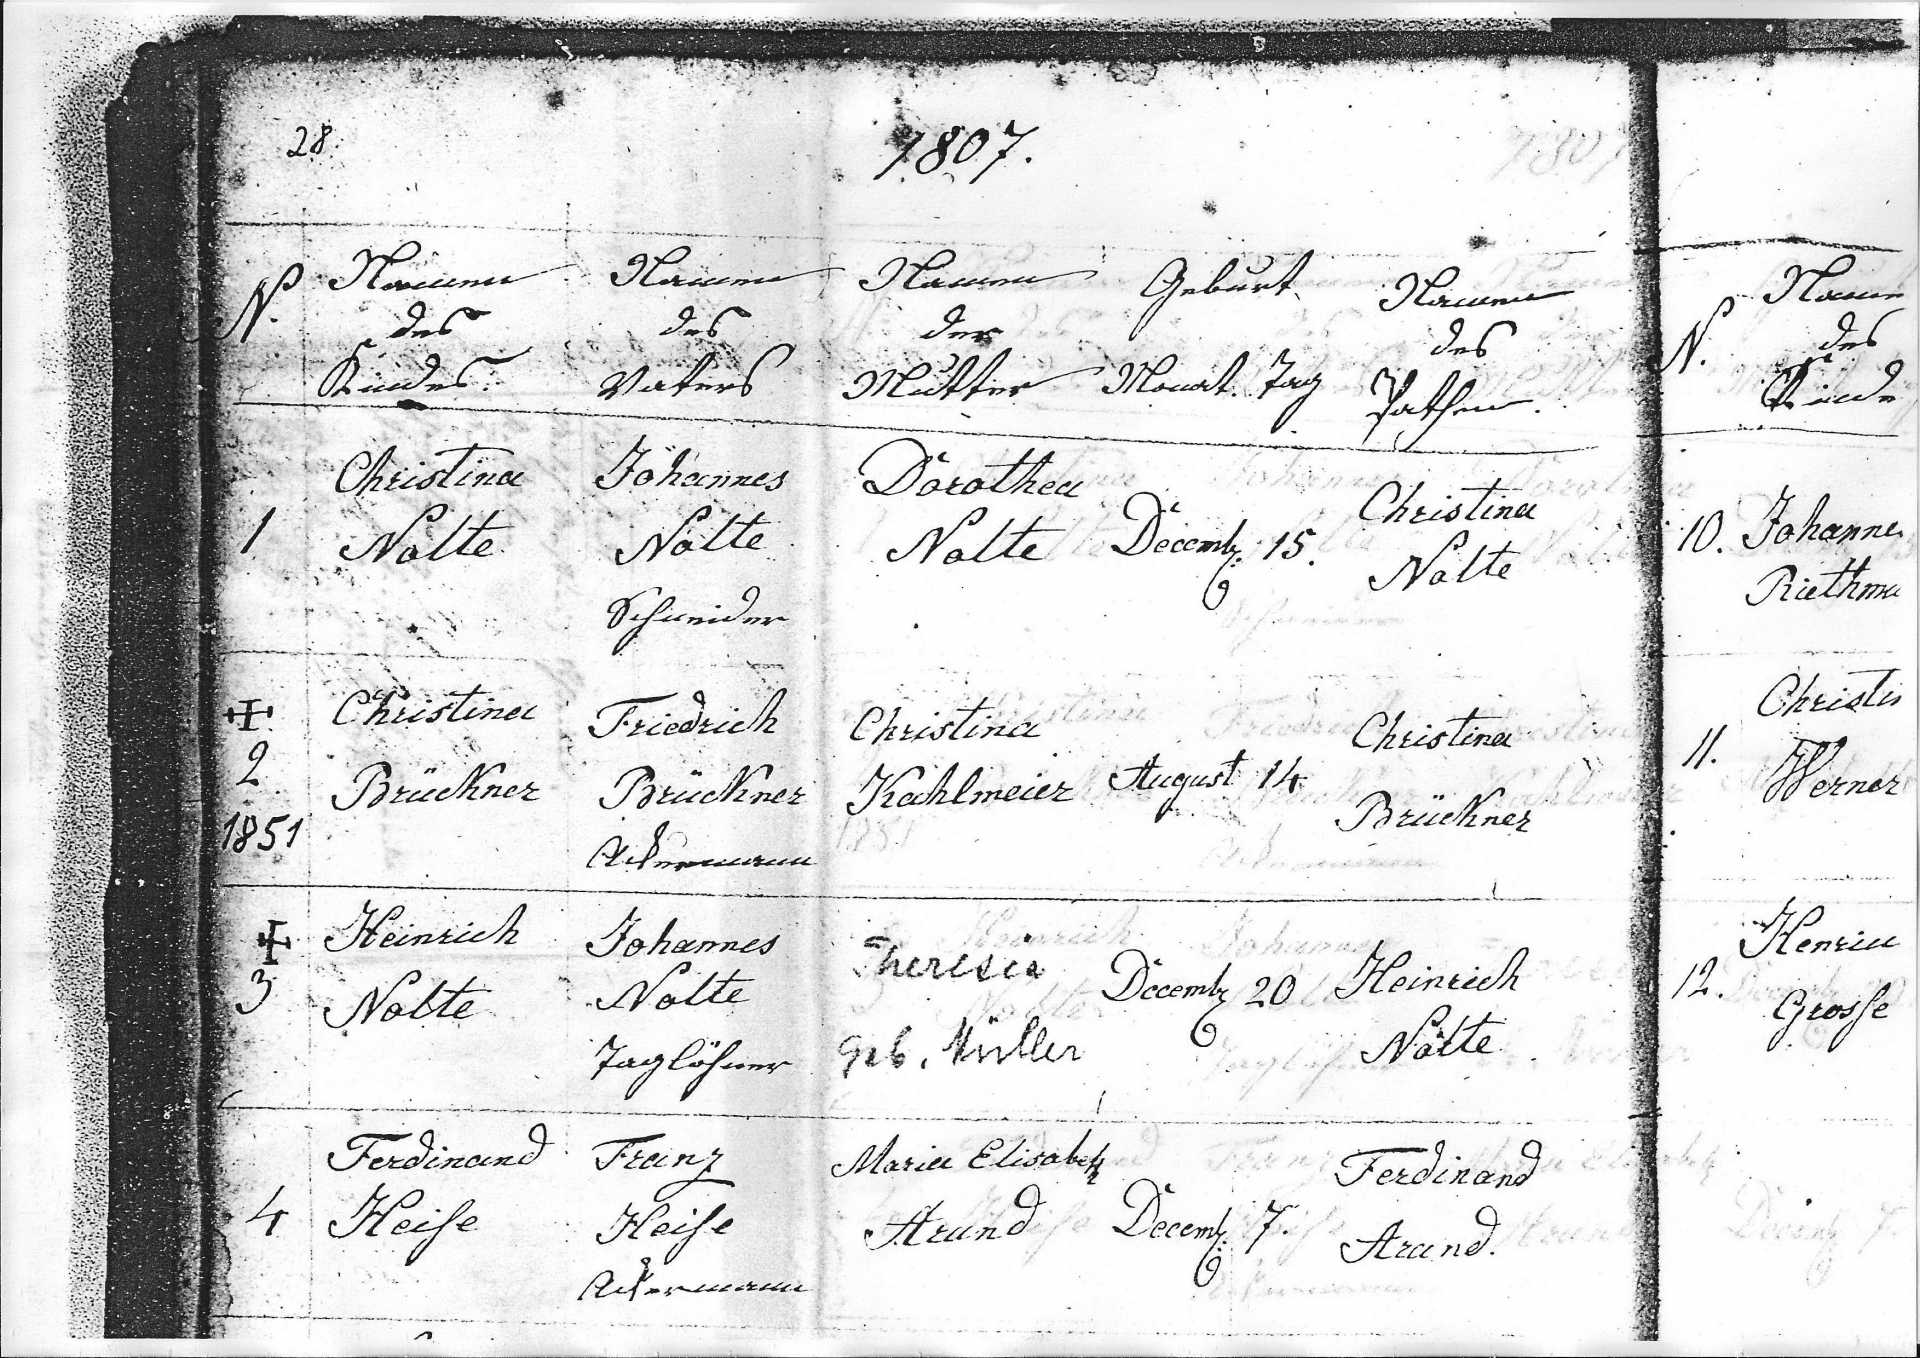 28.
1807.
N.
Namen
des
Kindes
Namen
des
Vaters
Namen
der
Mutter
Geburt
Monat. Tag
Namen
des
Pathen.
1
Christina
Nolte
Johannes
Nolte
Schneider
Dorothea
Nolte
Decemb. 15.
Christina
Nolte
2
1851
Christina
Brückner
Friedrich
Brückner
Ackermann
Christina
Kahlmeier
August 14.
Christina
Brückner
3
Heinrich
Nolte
Johannes
Nolte
Taglöhner
Theresia
geb. Müller
Decemb. 20
Heinrich
Nolte
4
Ferdinand
Heise
Franz
Heise
Ackermann
Maria Elisabeth
Arand
Decemb. 7.
Ferdinand
Arand.
N.
Name
des
Kinde
10. Johanne
Riethma
11.
Christi
Werner
12.
Henrie
Grosse